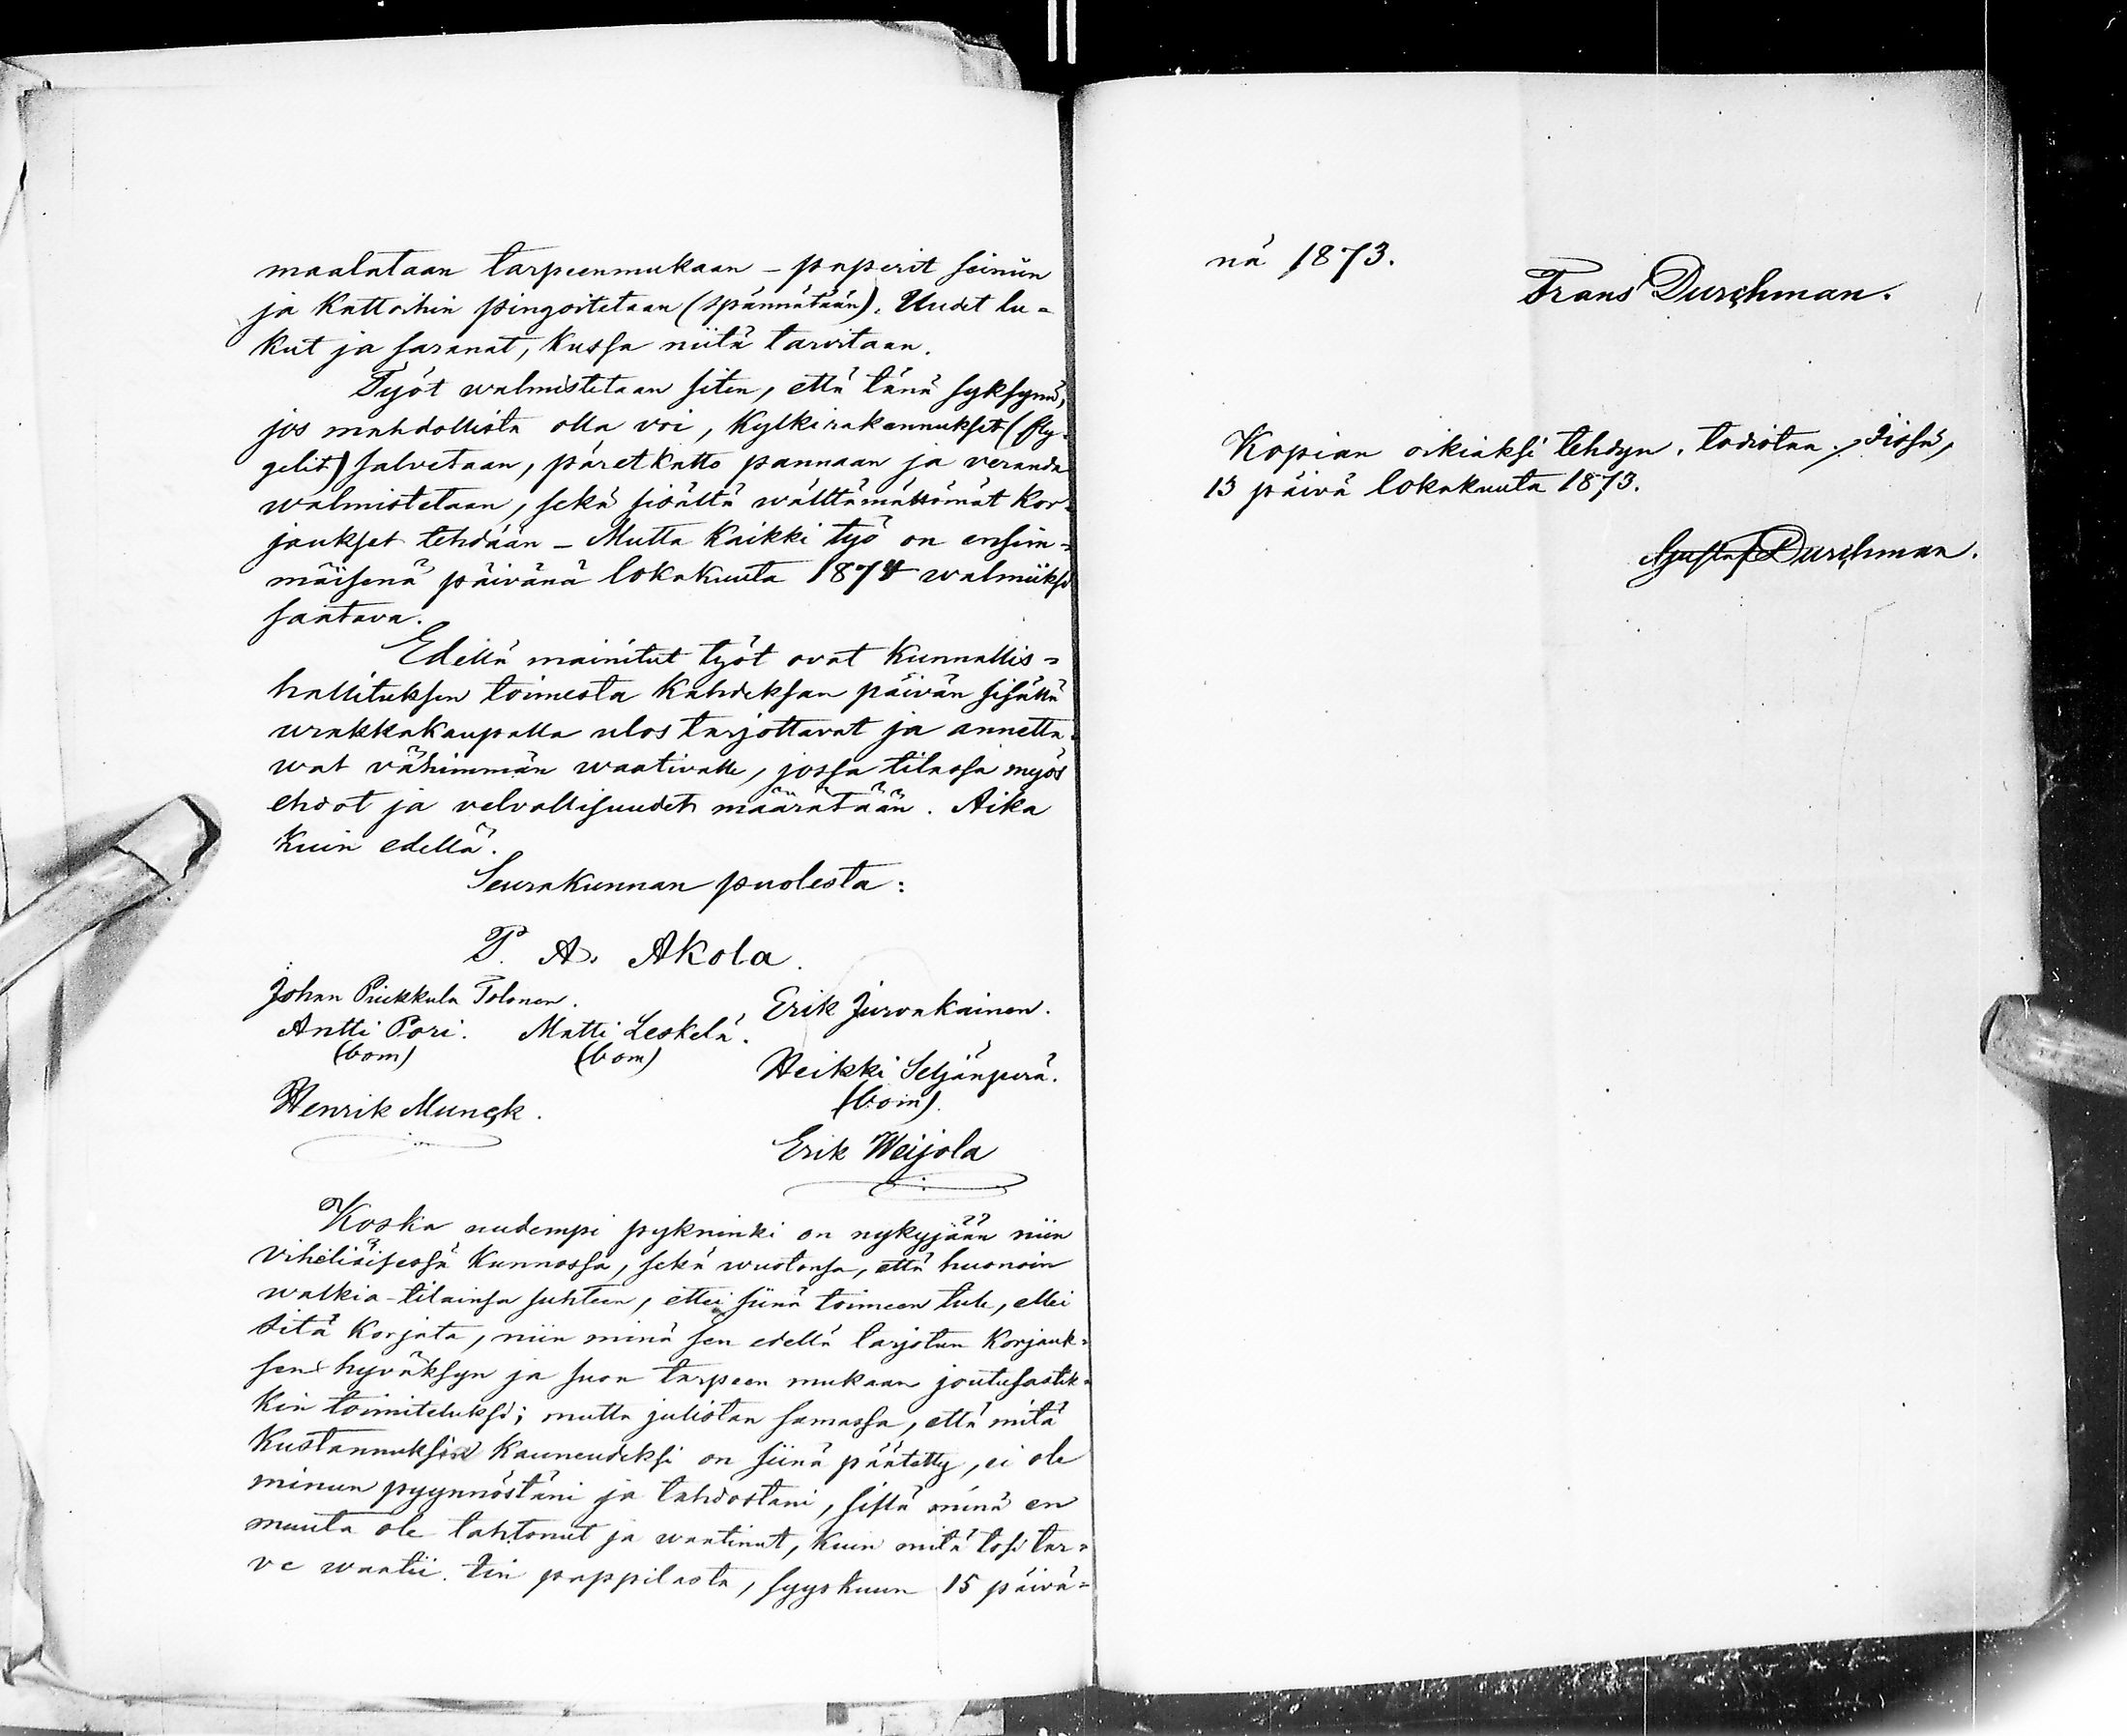 maalataan tarpeenmukaan – paperit seiniin
ja kattoihin pingoitetaan (spännätään). Uudet lu=
kut ja saranat, kussa niitä tarvitaan.
Työt walmistetaan siten, että tänä syksynä,
jos mahdollista olla voi, kylkirakennukset (fly=
gelit) salvetaan, päretkatto pannaan ja veranda
walmistetaan, sekä sisältä wälttämättömät kor=
jaukset tehdään – Mutta kaikki työ on ensim=
mäisenä päivänä lokakuuta 1874 walmiiksi
saatava.
Edellä mainitut työt ovat kunnallis=
hallituksen toimesta kahdeksan päivän sisällä
urakkakaupalla ulos tarjottavat ja annetta=
wat vähimmän waativalle, jossa tilassa myös
ehdot ja velvollisuudet määrätään. Aika
kuin edellä.
Seurakunnan puolesta:
P. A. Akola.
Johan Puikkula Tolonen. Erik Jurvakainen.
Antti Pori. Matti Leskelä.
(bom) (bom) Heikki Seljänperä.
Henrik Munck. (bom).
Erik Weijola
Koska uudempi pykninki on nykyjään niin
viheliäisessä kunnossa, sekä wuotonsa, että huonoin
walkia-tilainsa suhteen, ettei siinä toimeen tule, ellei
sitä korjata, niin minä sen edellä tarjotun korjauk=
sen hyväksyn ja suon tarpeen mukaan joutusastik=
kin toimiteluksi; mutta julistan samassa, että mitä
kustannuksia kauneudeksi on siinä päätetty, ei ole
minun pyynnöstäni ja tahdostani, sillä minä en
muuta ole tahtonut ja waatinut, kuin mitä tosi tar=
ve waatii. Iin pappilasta, syyskuun 15 päivä=
nä 1873.
Frans Durchman.
Kopian oikiaksi tehdyn, todistaa. Iissä,
13 päivä lokakuuta 1873.
Gustaf Durchman.